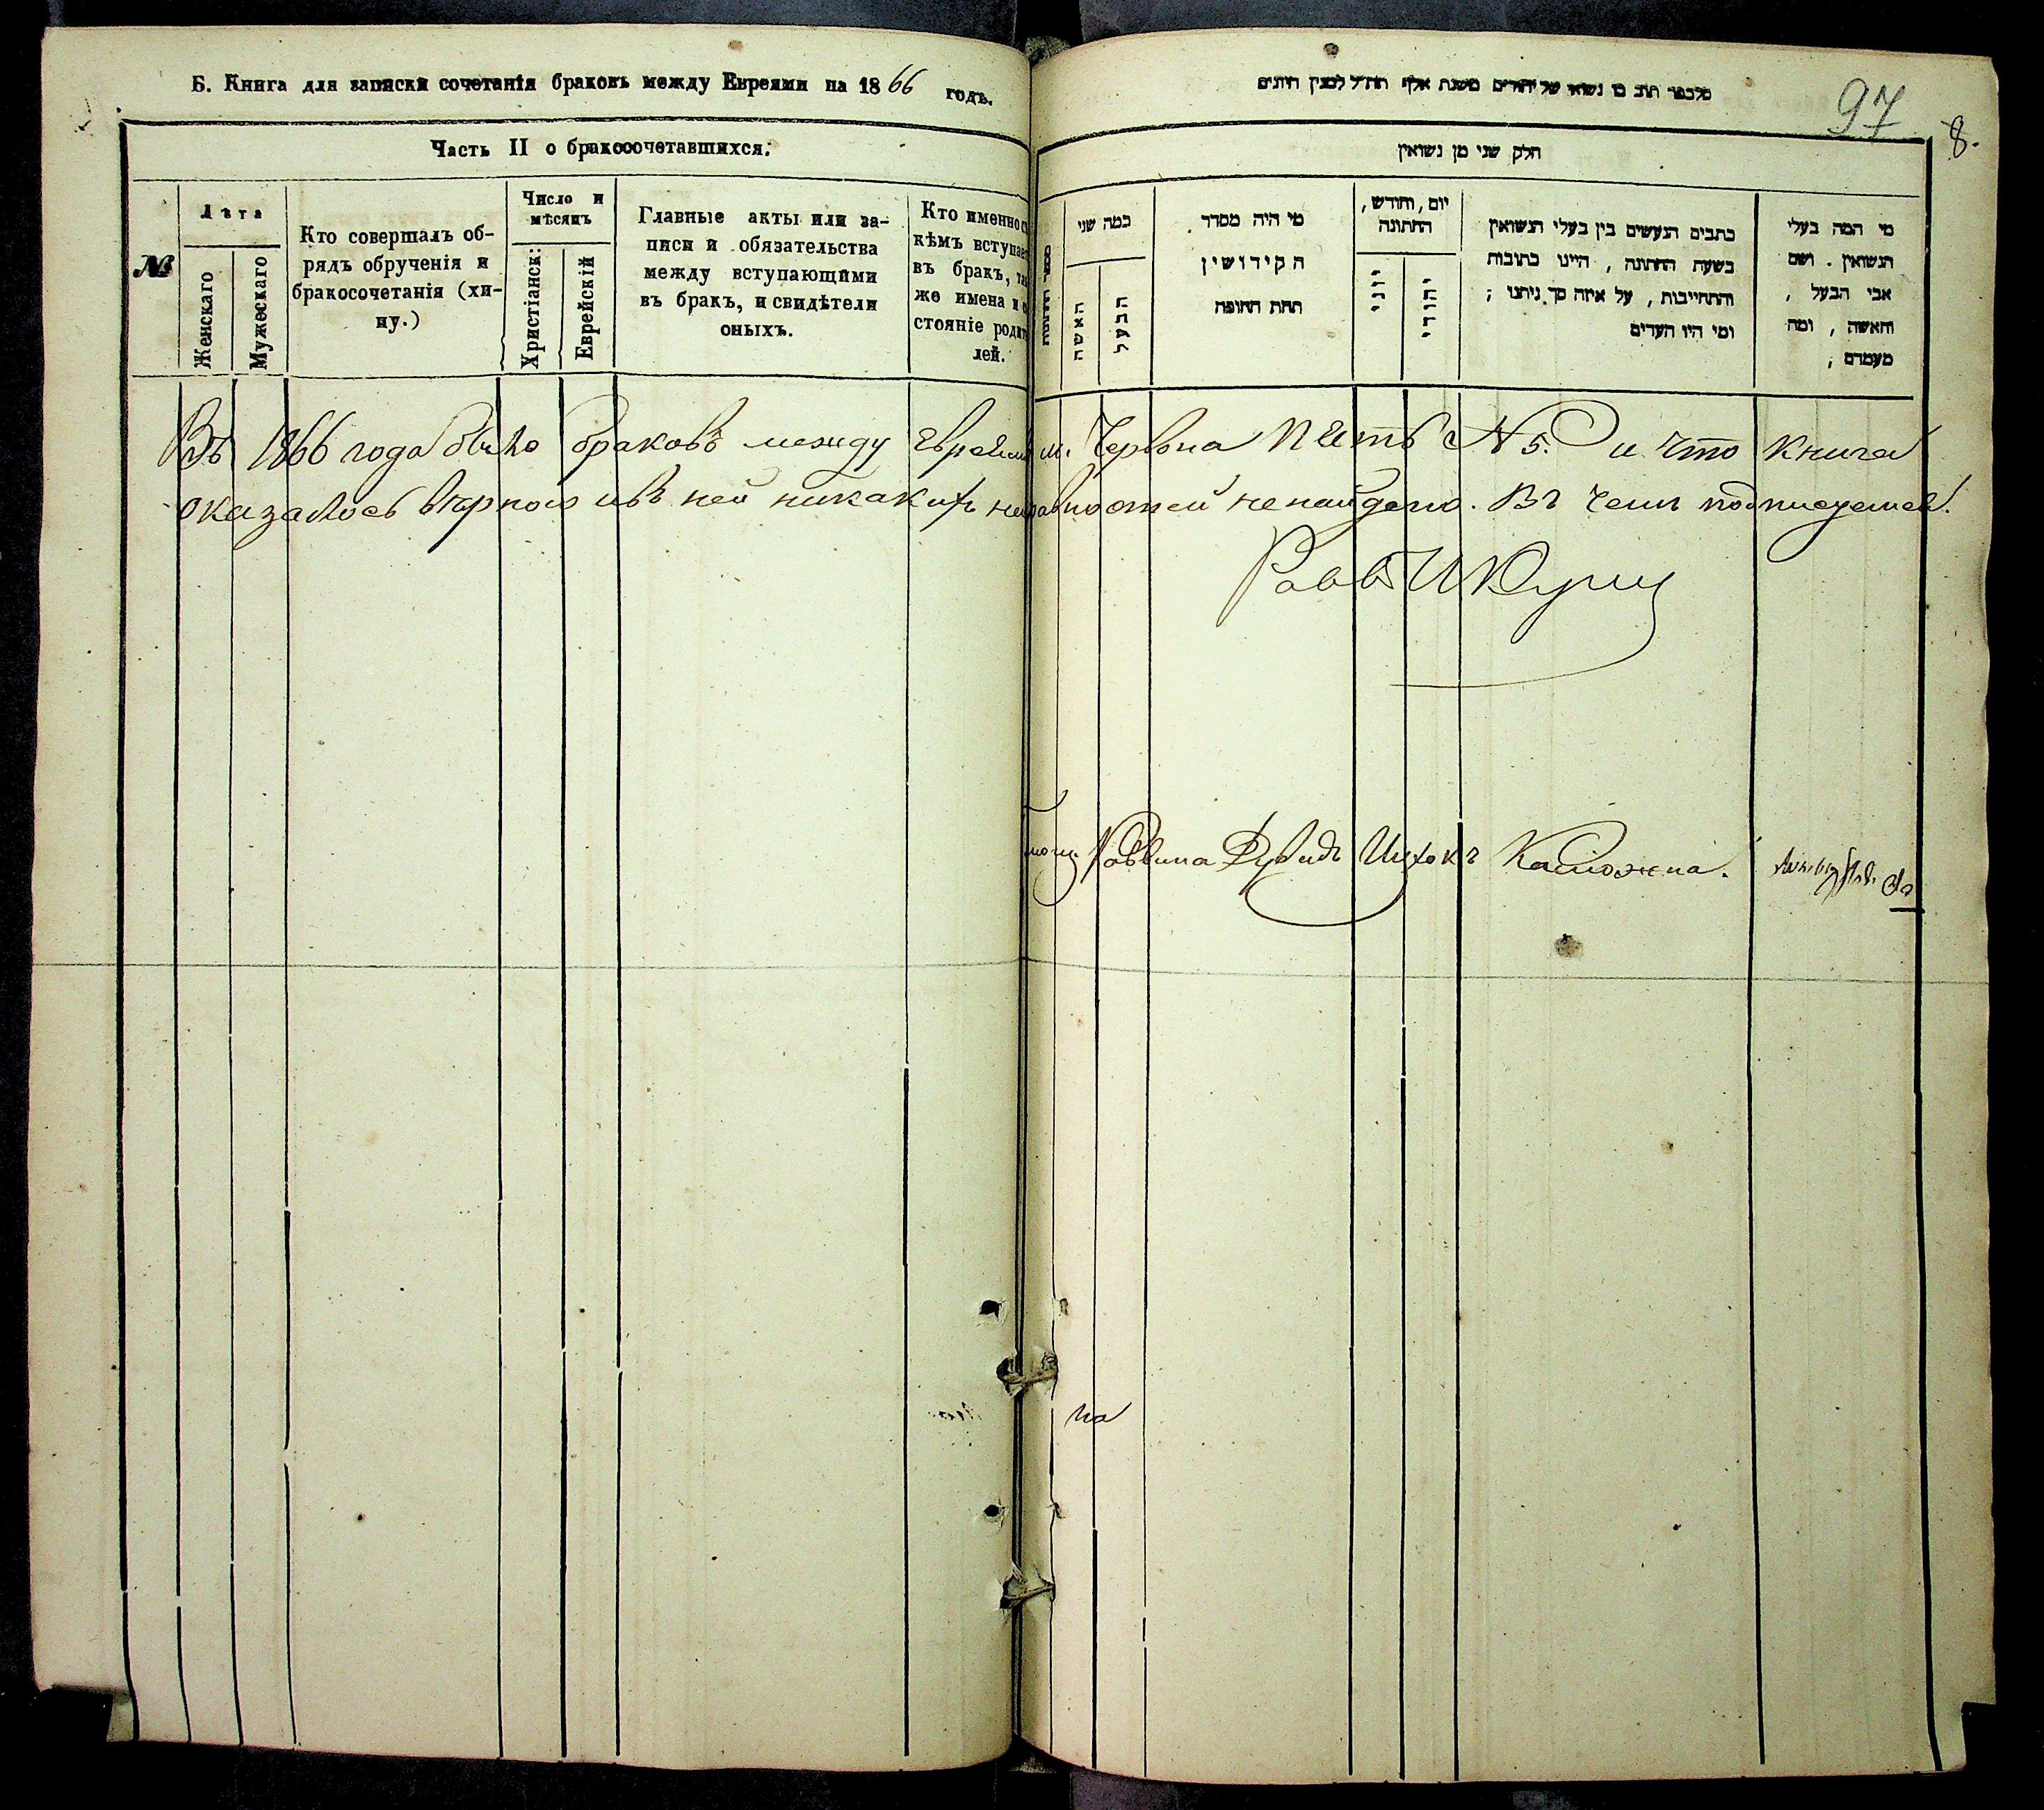 Б. Книга для записки сочетанія браковъ между Евреями на 1866 годъ.
Часть II о бракосочетавшихся.
№
Лѣта
Женскаго
Мужескаго
Кто совершалъ об-
рядъ обрученія и
бракосочетанія (хи-
ну.)
Число и
мѣсяцъ
Христіанск:
Еврейскій
Главные акты или за-
писи и обязательства
между вступающими
въ бракъ, и свидѣтели
оныхъ.
Кто именно съ
кѣмъ вступае
въ бракъ, та
же имена и с
стояніе роди
лей.
97
8.
חלק שני מן נשואין
במה שני
האשה
הבעל
מי היה מסדר
הקידושין
תחת החופה
יום, וחודש,
החתונה
יוני
יהודי
כתבים הנעשים בין בעלי הנשואין
בשעת החתונה, היינו כתובות
והתחייבות, על איזה סך ניתנו;
ומי היו העדים
מי המה בעלי
הנשואין. ושם
אבי הבעל,
והאשה, ומה
מעמדם;
Въ 1866 года было браковъ между Евреями м. Червона пять №5. и что книга
оказалось вѣрною и въ ней никакихъ не ненайдено. Въ чемъ подписуемся.
Равв
Раввина Ицхокъ
на